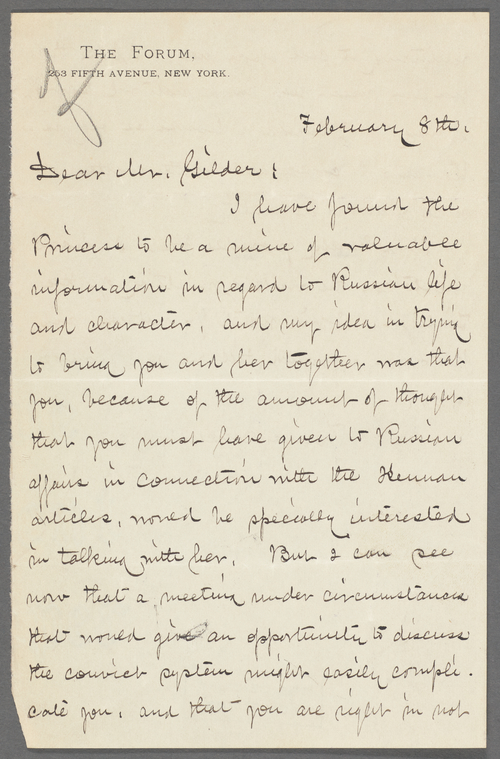 THE FORUM,
253 FIFTH AVENUE, NEW YORK.
February 8th.
Dear Mr. Gilder:
I have found the
Princess to be a mine of valuable
information in regard to Russian life
and character, and my idea in trying
to bring you and her together was that
you, because of the amount of thought
that you must have given to Russian
affairs in connection with the Kennan
articles, would be specially interested
in talking with her. But I can see
now that a meeting under circumstances
that would give an opportunity to discuss
the convict system might easily compli-
cate you, and that you are right in not